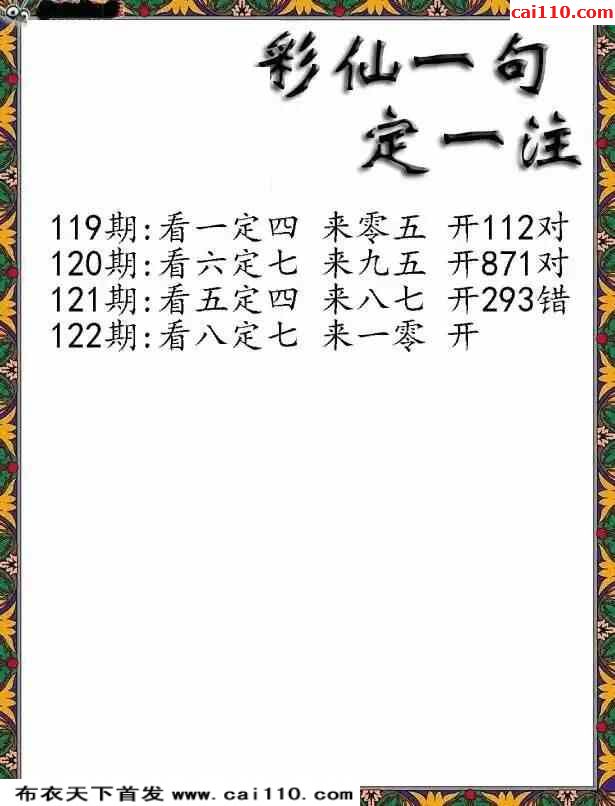 cai110.com
彩仙一句
定一注
119期:看一定四 来零五 开112对
120期:看六定七 来九五 开871对
121期:看五定四 来八七 开293错
122期:看八定七 来一零 开
布衣天下首发 www.cai110.com